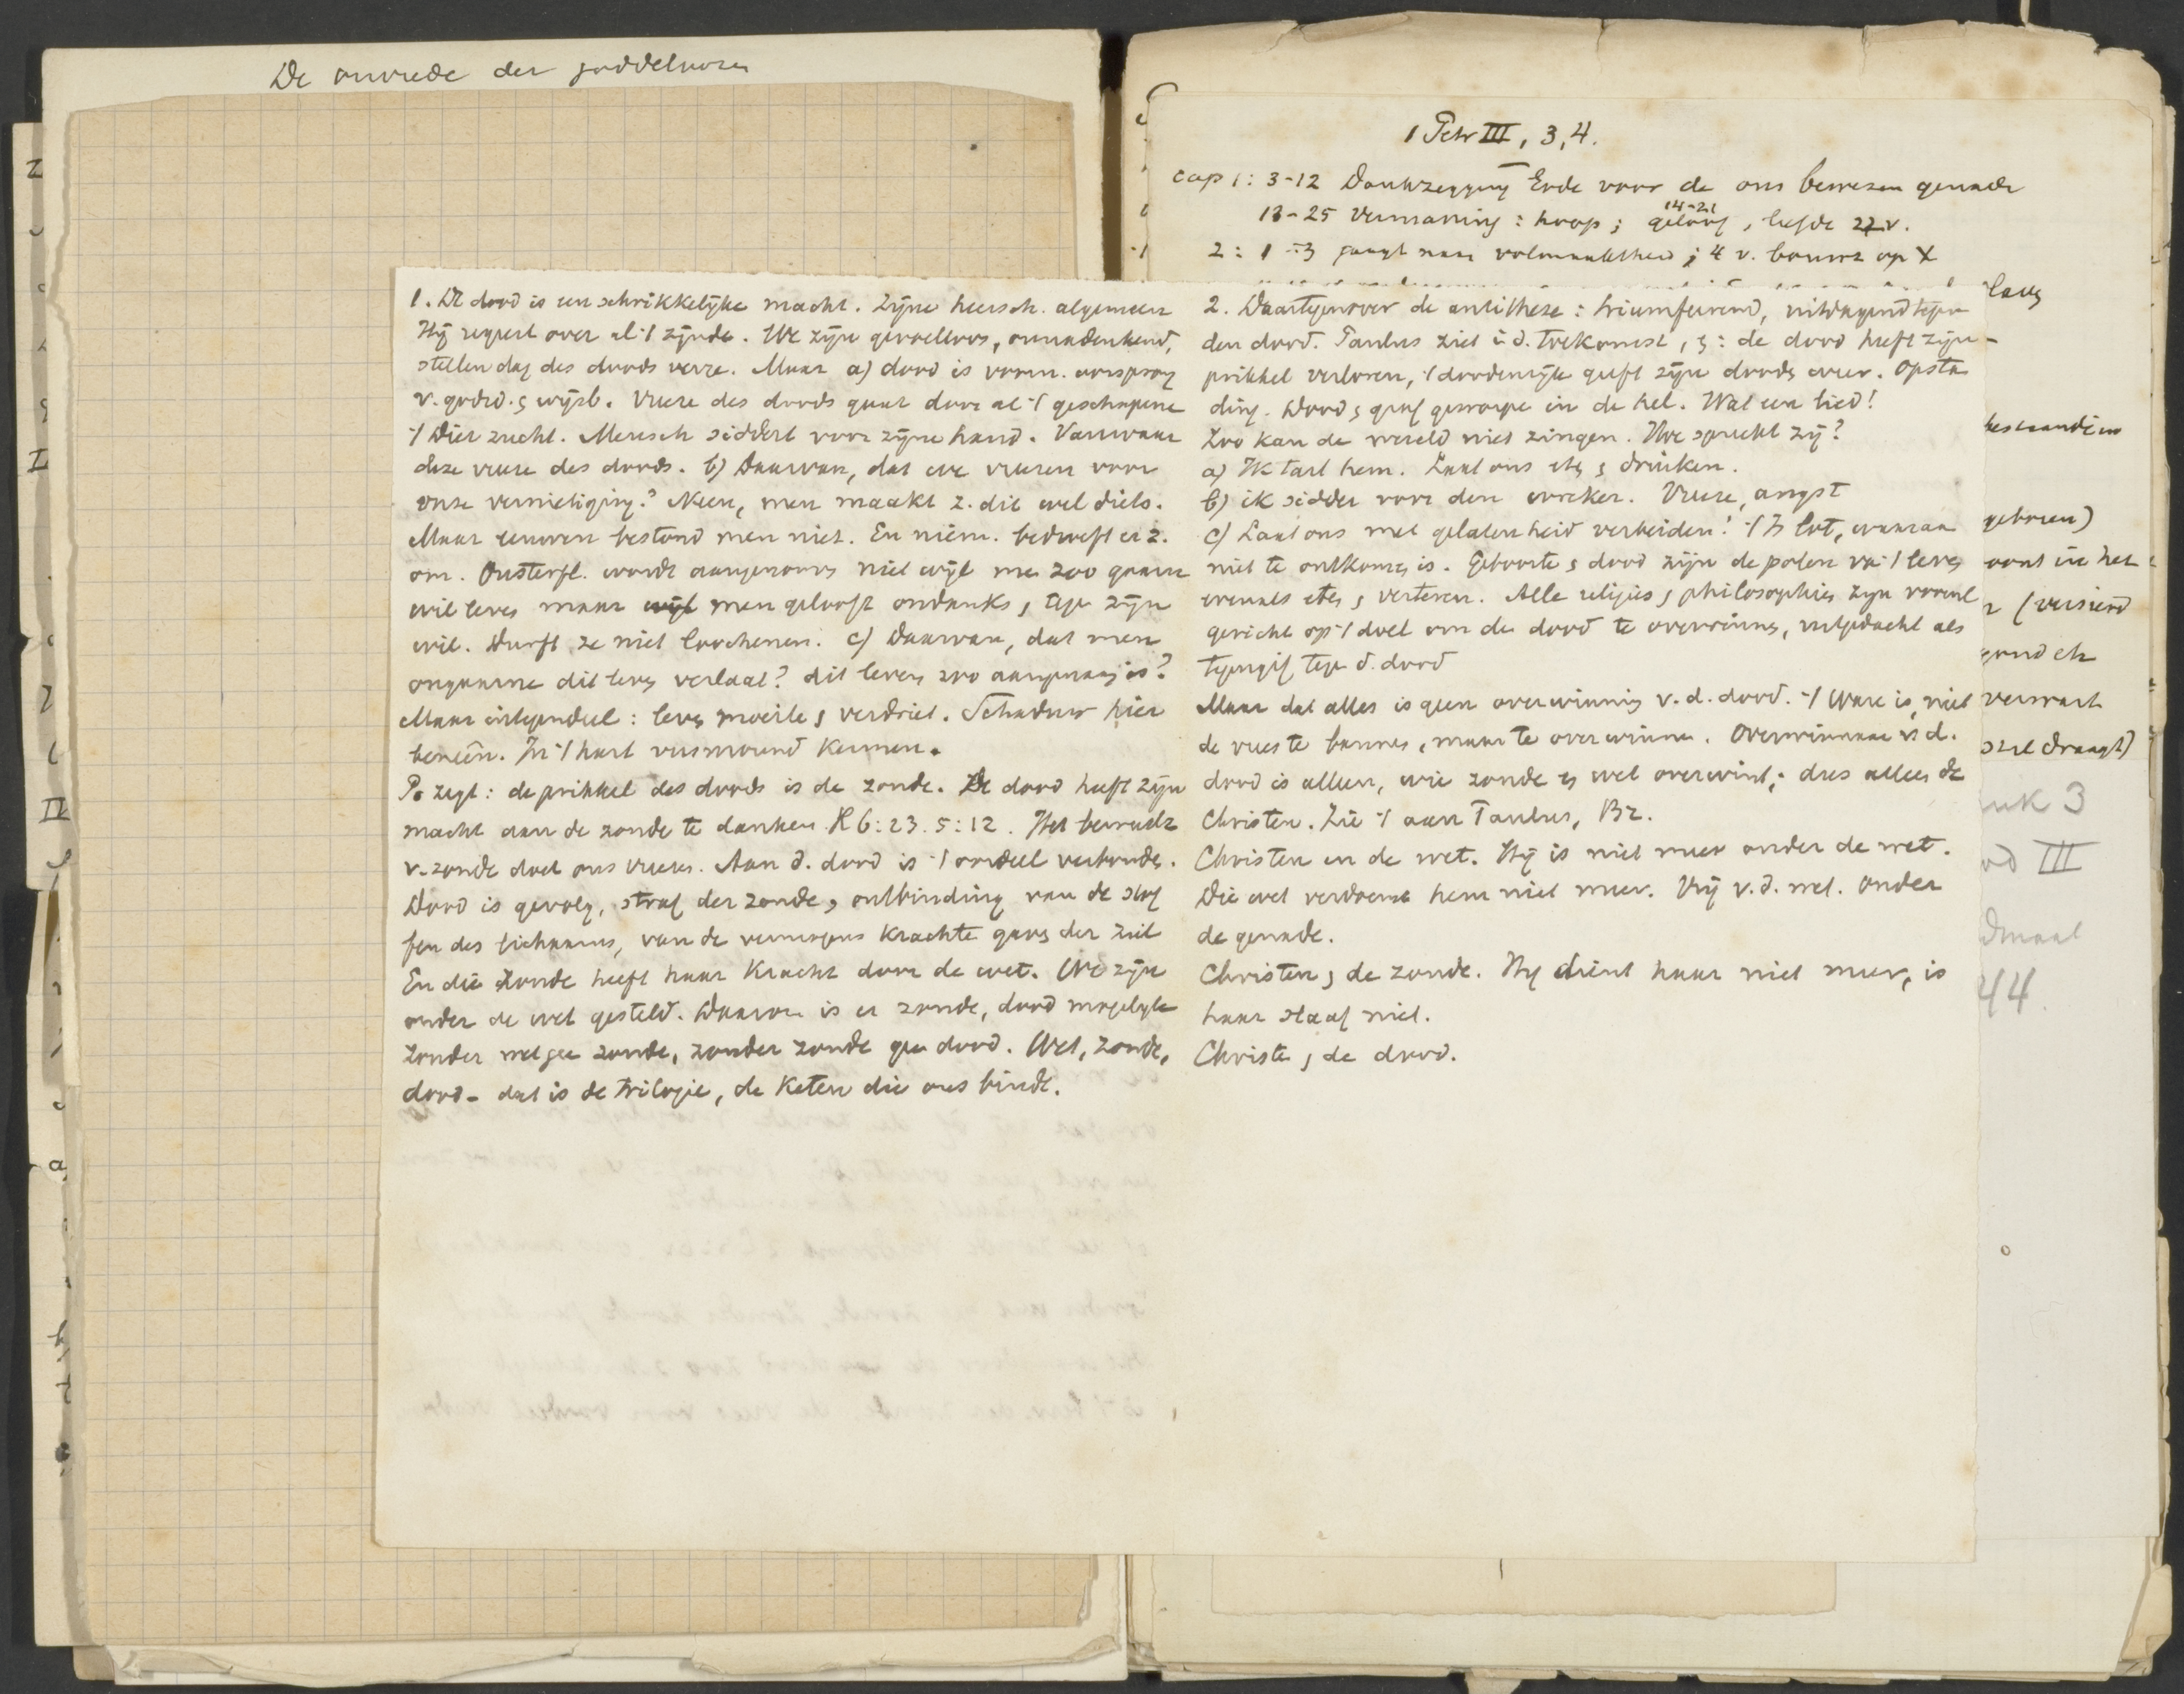 De onvrede der goddeloozen
1 Petr III, 3, 4.
cap 1: 3-12 Dankzegging Gode voor de ons bewezen genade
13-25 vermaning: hoop; geloof 14-21, liefde 22 v.
2: 1-3 jaagt naar volmaaktheid; 4 v. bouwt op X
1. De dood is een schrikkelijke macht. Zijne heersch. algemeen
Hij regeert over al 't zijnde. We zijn gevoelloos, onnadenkend,
stellen dag des doods verre. Maar a) dood is voorn. oorsprong
v. godsd. & wijsb. Vreze des doods gaat door al 't geschapene
't Dier zucht. Mensch siddert voor zijne hand. Vanwaar
deze vreze des doods. b) Daarvan, dat we vreezen voor
onze vernietiging? Neen, men maakt z. dit wel diets.
Maar eeuwen bestond men niet. En niem. bedroeft er z.
om. Onsterfl. wordt aangenomen niet wijl men zoo gaarne
wil leven maar wijl men gelooft ondanks, tegen zijn
wil. Durft ze niet loochenen. c) Daarvan, dat men
ongaarne dit leven verlaat? dit leven zoo aangenaam is?
Maar integendeel: leven moeite & verdriet. Schaduw hier
beneên. In 't hart
P. zegt: de prikkel des doods is de zonde. De dood heeft zijn
macht aan de zonde te danken. R 6:23. 5:12. Het bewustz
v. zonde doet ons vreezen. Aan d. dood is 't oordeel verbonden.
Dood is gevolg, straf der zonde, ontbinding van de stof
fen des lichaams, van de vermogens krachten gaven der ziel
En die zonde heeft haar kracht door de wet. We zijn
onder de wet gesteld. Daarom is er zonde, dood mogelijk
Zonder wet geen zonde, zonder zonde geen dood. Wet, zonde,
dood - dat is de trilogie, de keten die ons bindt.
2. Daartegenover de antithese: triumfeerend, uitdagend tegen
den dood. Paulus ziet i d. toekomst, &: de dood heeft zijn
prikkel verloren, 't doodenrijk geeft zijn dooden weer. Opstan
ding. Dood & graf geworpen in de hel. Wat een lied!
Zoo kan de wereld niet zingen. Hoe spreekt zij?
a) Ik tart hem. Laat ons eten & drinken.
b) ik sidder voor den wreker. Vreze, angst
c) Laat ons met gelatenheid verbeiden! 't Is lot, waaraan
niet te ontkomen is. Geboorte & dood zijn de polen van 't leven
evenals eten & verteren. Alle religies & philosophies zijn vooral
gericht op 't doel om de dood te overwinnen, uitgedacht als
tegengif tegen d. dood
Maar dat alles is geen overwinning v. d. dood. 't Ware is, niet
de vrees te bannen, maar te overwinnen. Overwinnaar v d.
dood is alleen, wie zonde en wet overwint; dus alleen de
Christen. Zie 't aan Paulus, Bz.
Christen en de wet. Hij is niet meer onder de wet.
Die wet verdoemt hem niet meer. Vrij v. d. wet. Onder
de genade.
Christen & de zonde. Hij dient haar niet meer, is
haar slaaf niet.
Christen & de dood.
geboren)
woont in het
(versierd
verwart
draagt)
3
III
44.